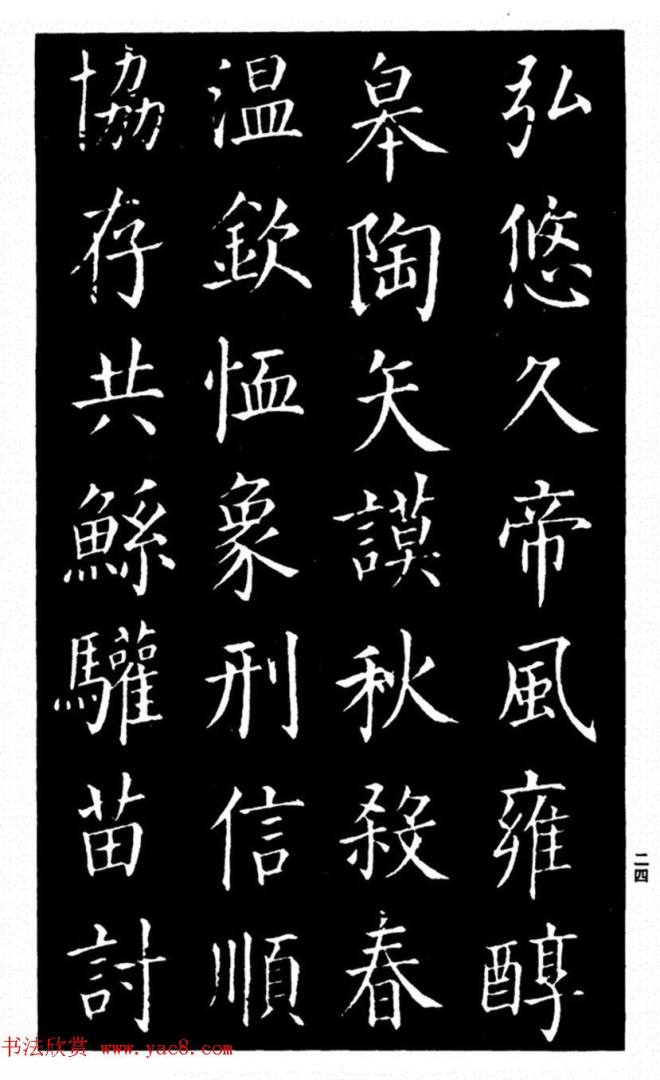 弘悠久帝風雍醇
皋陶矢謨秋殺春
温欽恤象刑信順
協存共鯀驩苗討
二四
书法欣赏 www.yac8.com